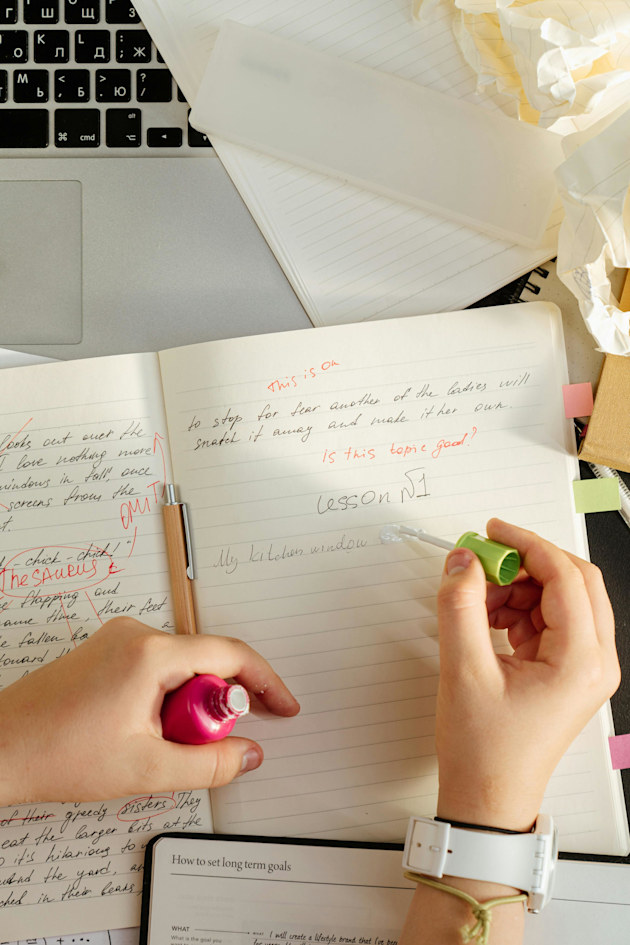 Г Ш Щ З
О Л Д Ж
Ь Б Ю
М < > ?
cmd
alt
looks out over the
I love nothing more
windows in fall, once
screens from the
OMIT
chick-chick!
Thesaurus
flapping and
same time, their feet
fallen
toward the
of their greedy sisters! They
eat the larger bits at the
it's hilarious to
the yard,
in their beaks,
This is on
to stop for fear another of the ladies will
snatch it away and make it her own.
Is this topic good?
Lesson №1
My kitchen window
How to set long term goals
WHAT
What is the goal you
I will create a lifestyle brand that I've been